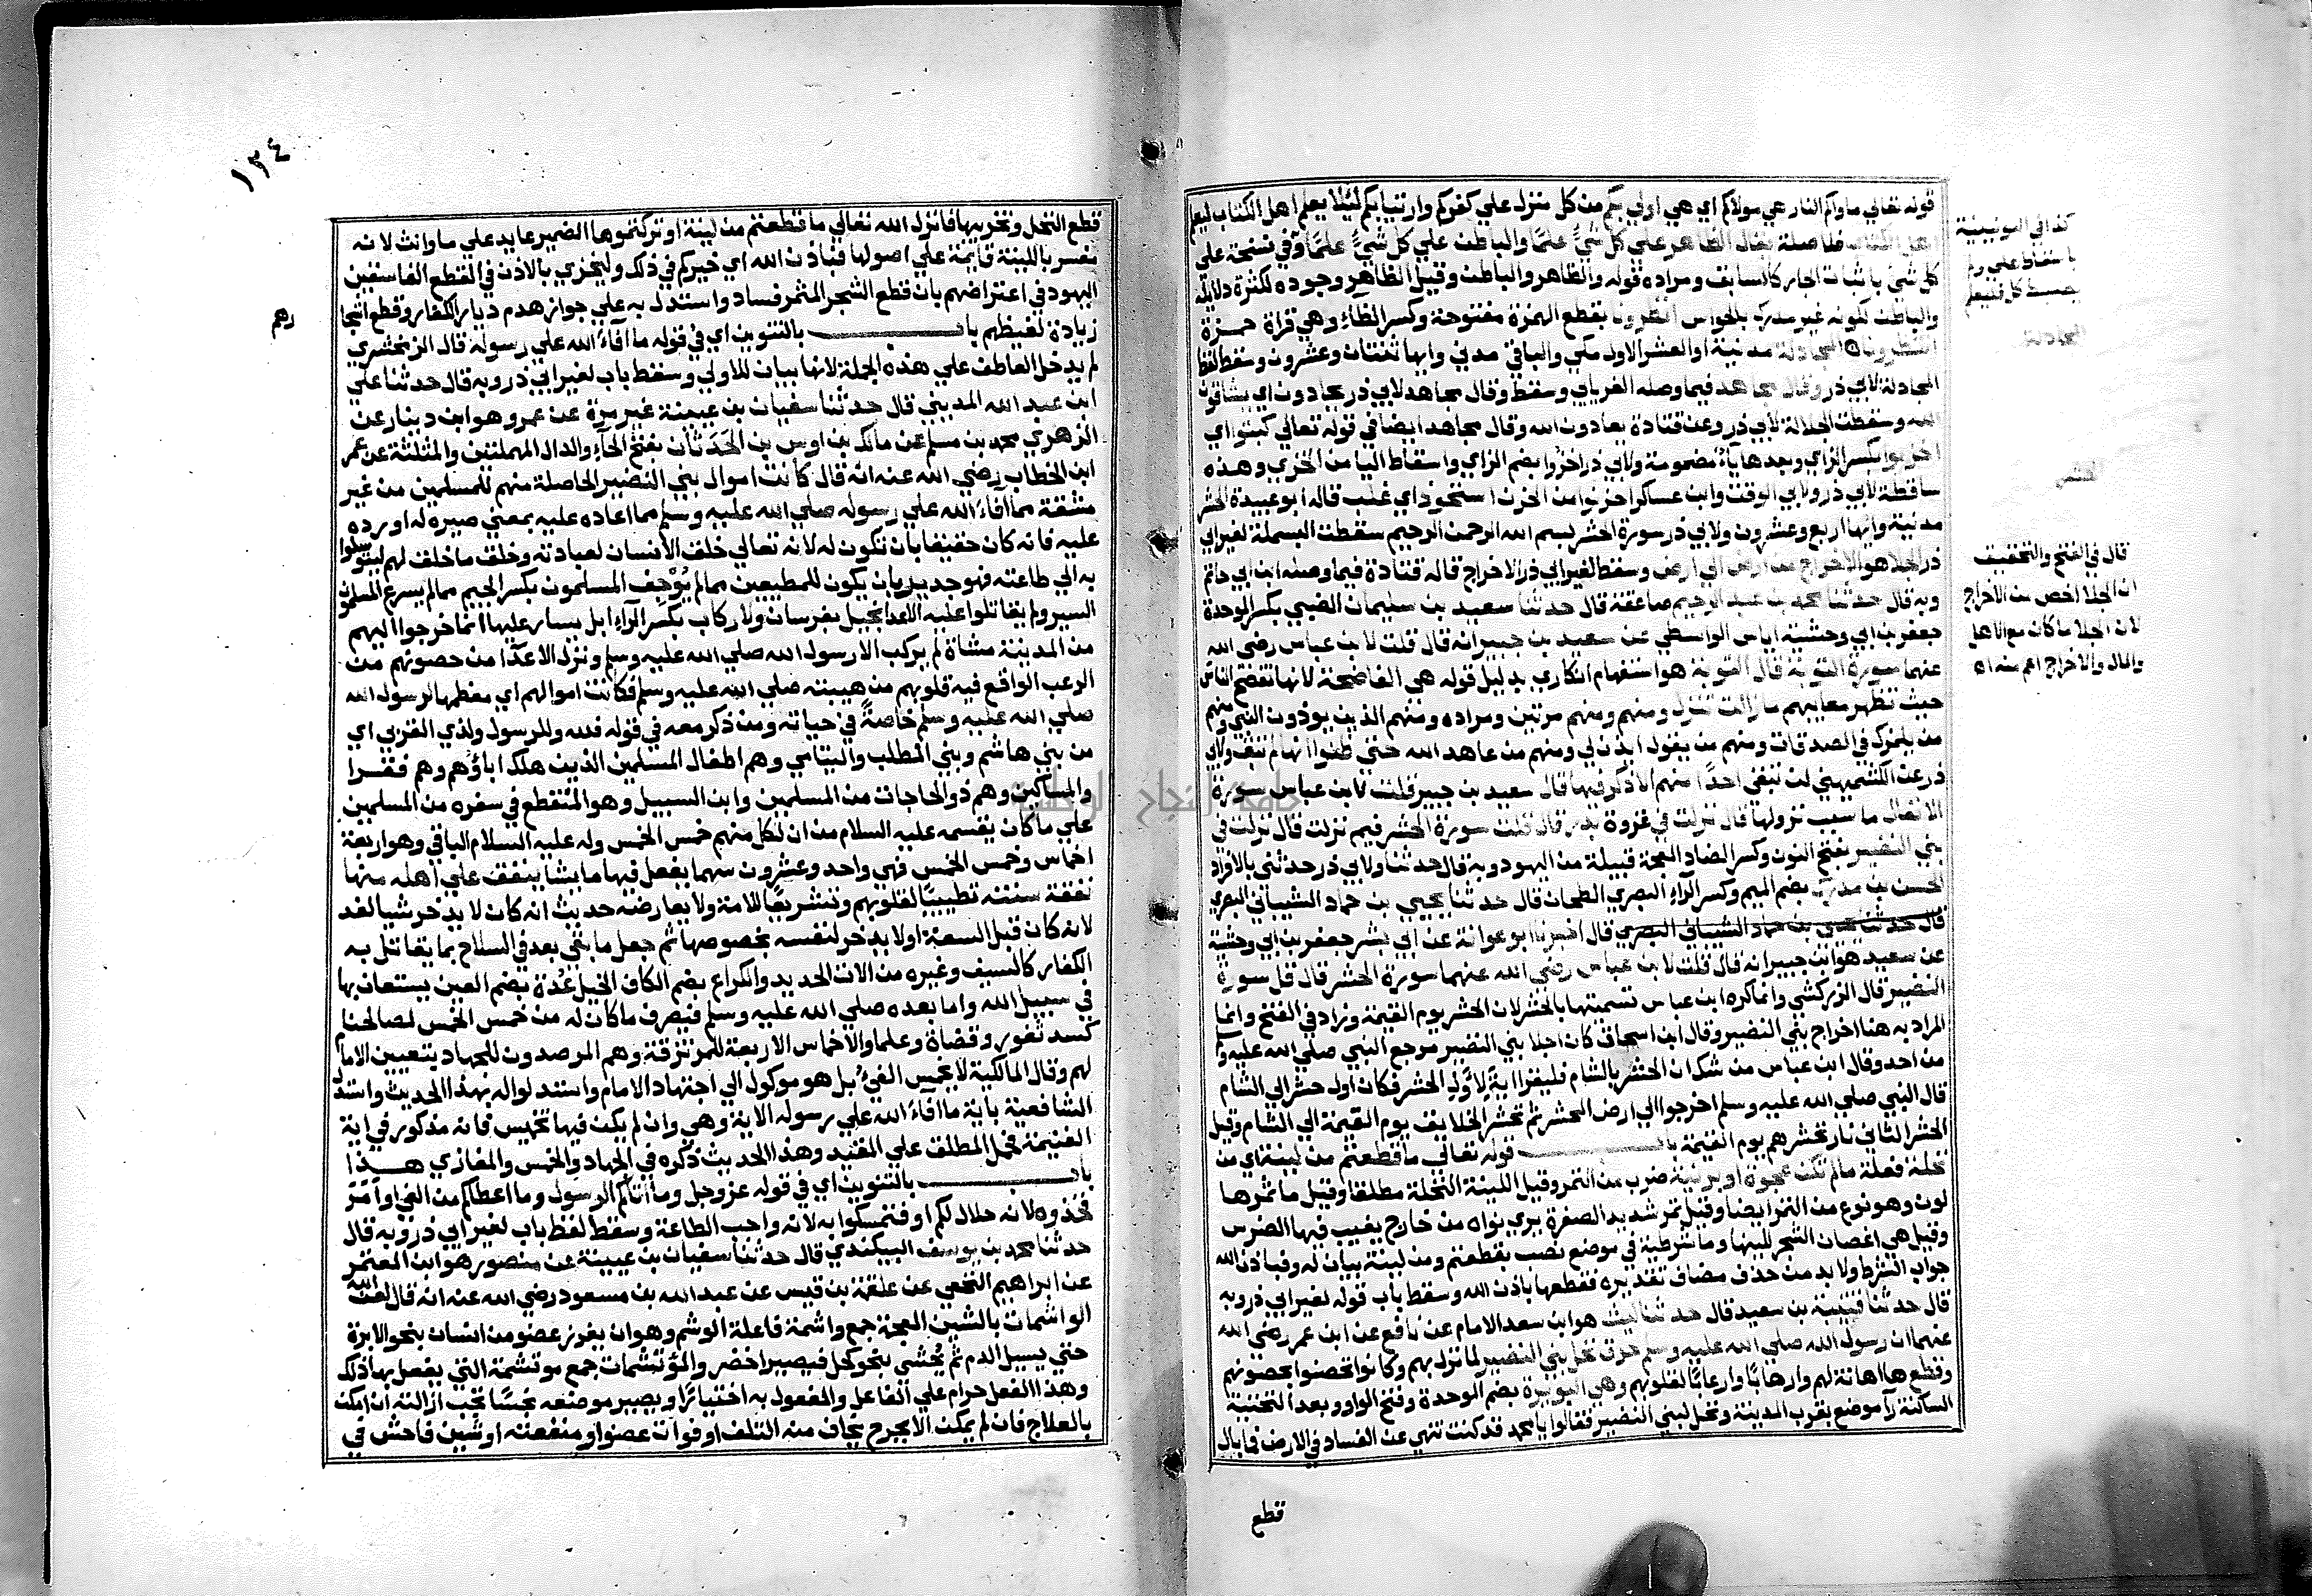 قوله تعالي ماواكم النار هي مولاكم اي هي اولي بكم من كل منزل علي كفركم وارتيابكم لئلا يعلم اهل الكتاب ليعلم
اهل الكتاب فلا صلة يقال الظاهر علي كل شيً علمًا والباطن علي كل شيً علمًا وفي نسخة علي
كل شي باثبات الجار كالسابق ومراده قوله والظاهر والباطن وقيل الظاهر وجوده لكثرة دلايله
والباطن لكونه غير مدرك بالحواس انظرونا بقطع الهمزة مفتوحة وكسر الظاء وهي قراة حمزة
انتظرونا المجادلة مدنية او العشر الاول مكي والباقي مدني وايها ثنتان وعشرون وسقط لفظ
المجادلة لابي ذر وقال مجاهد فيما وصله الفريابي وسقط وقال مجاهد لابي ذر يحادون اي يشاقون
الله وسقطت الجلالة لابي ذر وعن قتادة يعادون الله وقال مجاهد ايضا في قوله تعالي كبتوا اي
اخزيوا بكسر الزاي وبعدها ياء مضمومة ولابي ذر اخزوا بضم الزاي واسقاط اليا من الخزي وهذه
ساقطة لابي ذر ولابي الوقت وابن عساكر احزنوا من الحزن استحوذ اي غلب قاله ابو عبيدة الحشر
مدنية وايها اربع وعشرون ولابي ذر سورة الحشر بسم الله الرحمن الرحيم سقطت البسملة لغير ابي
ذر الجلا هو الاخراج من ارض الي ارض وسقط لغير ابي ذر الاخراج قاله قتادة فيما وصله ابن ابي حاتم
وبه قال حدثنا محمد بن عبد الرحيم صاعقة قال حدثنا سعيد بن سليمان الضبي بكسر الموحدة
جعفر بن ابي وحشية اياس الواسطي عن سعيد بن جبير انه قال قلت لابن عباس رضي الله
عنهما سورة التوبة قال التوبة هو استفهام انكاري بدليل قوله هي الفاضحة لانها تفضح الناس
حيث تظهر معايبهم ما زالت تنزل ومنهم ومنهم مرتين ومراده ومنهم الذين يوذون النبي ومنهم
من يلمزك في الصدقات ومنهم من يقول ايذن لي ومنهم من عاهد الله حتي ظنوا انها لم تبق ولابي
ذر عن الكشميهني لن تبقي احدًا منهم الا ذكر فيها قال سعيد بن جبير قلت لابن عباس سورة
الانفال ما سبب نزولها قال نزلت في غزوة بدر قال قلت سورة الحشر فيم نزلت قال نزلت في
بني النضير بفتح النون وكسر الضاد المعجمة قبيلة من اليهود وبه قال حدثنا ولابي ذر حدثني بالافراد
الحسن بن مدرك بضم الميم وكسر الراء البصري الطحان قال حدثنا يحيي بن حماد الشيباني البصري
قال حدثنا يحيي بن حماد الشيباني البصري قال اخبرنا ابو عوانة عن ابي بشر جعفر بن ابي وحشية
عن سعيد هو ابن جبير انه قال قلت لابن عباس رضي الله عنهما سورة الحشر قال قل سورة
النضير قال الزركشي وانما كره ابن عباس تسميتها بالحشر لان الحشر يوم القيمة وزاد في الفتح وانما
المراد به هنا اخراج بني النضير وقال ابن اسحاق كان اجلا بني النضير مرجع النبي صلي الله عليه وسلم
من احد وقال ابن عباس من شك ان الحشر بالشام فليقرا اية لاول الحشر فكان اول حشر الي الشام
قال النبي صلي الله عليه وسلم اخرجوا الي ارض المحشر ثم تحشر الخلايق يوم القيمة الي الشام وقيل
الحشر الثاني نار تحشرهم يوم القيمة باب قوله تعالي ما قطعتم من لينة اي من
نخلة فعلة مالم تكن عجوة او برنية ضرب من التمر وقيل اللينة النخلة مطلقا وقيل ما تمرها
لون وهو نوع من التمر ايضا وقيل تمر شديد الصفرة يري نواه من خارج يغيب فيها الضرس
وقيل هي اغصان الشجر للينها وما شرطية في موضع نصب بقطعتم ومن لينة بيان له وفباذن الله
جواب الشرط ولا بد من حذف مضاف تقديره فقطعها باذن الله وسقط باب قوله لغير ابي ذر وبه
قال حدثنا قتيبة بن سعيد قال حدثنا ليث هو ابن سعد الامام عن نافع عن ابن عمر رضي الله
عنهما ان رسول الله صلي الله عليه وسلم حرق نخل بني النضير لما نزل بهم وكانوا تحصنوا بحصونهم
وقطعها اهانة لهم وارهابًا وارعابًا لقلوبهم وهي البويرة بضم الموحدة وفتح الواو وبعد التحتية
الساكنة راء موضع بقرب المدينة ونخل لبني النضير فقالوا يا محمد قد كنت تنهي عن الفساد في الارض فما بال
قطع
كذا في اليونينية
باسقاط علي ولم
يضبط كل فليعلم
المجادلة
الحشر
قال في الفتح والتحقيق
ان الجلا اخص من الاخراج
لان الجلا ما كان مع الاهل
والمال والاخراج اعم منه اه
١٣٤
قطع النخل وتخريبها فانزل الله تعالي ما قطعتم من لينة او تركتموها الضمير عايد علي ما وانث لانه
مفسر باللينة قايمة علي اصولها فباذن الله اي خيركم في ذلك وليخزي بالاذن في القطع الفاسقين
اليهود في اعتراضهم بان قطع الشجر المثمر فساد واستدل به علي جواز هدم ديار الكفار وقطع اشجا
رهم
زيادة لغيظهم باب بالتنوين اي في قوله ما افاء الله علي رسوله قال الزمخشري
لم يدخل العاطف علي هذه الجملة لانها بيان للاولي وسقط باب لغير ابي ذر وبه قال حدثنا علي
ابن عبد الله المديني قال حدثنا سفيان بن عيينة غير مرة عن عمرو هو ابن دينار عن
الزهري محمد بن مسلم عن مالك بن اوس بن الحَدَثان بفتح الحاء والدال المهملتين والمثلثة عن عمر
ابن الخطاب رضي الله عنه انه قال كانت اموال بني النضير الحاصلة منهم للمسلمين من غير
مشقة مما افاء الله علي رسوله صلي الله عليه وسلم مما اعاده عليه بمعني صيره له او رده
عليه فانه كان حقيقا بان تكون له لانه تعالي خلق الانسان لعبادته وخلق ما خلق لهم ليتوسلوا
به الي طاعته فهو جدير بان يكون للمطيعين مما لم يُوْجِف المسلمون بكسر الجيم مما لم يسرع المسلمون
السير ولم يقاتلوا عليه الاعدا بخيل بفرسان ولا ركاب بكسر الراء ابل يسار عليها انما خرجوا اليهم
من المدينة مشاة لم يركب الا رسول الله صلي الله عليه وسلم ونزل الاعدا من حصونهم من
الرعب الواقع فيه قلوبهم من هيبته صلي الله عليه وسلم فكانت اموالهم اي معظمها لرسول الله
صلي الله عليه وسلم خاصةً في حياته ومن ذكر معه في قوله فلله وللرسول ولذي القربي اي
من بني هاشم وبني المطلب واليتامي وهم اطفال المسلمين الذين هلك اباؤهم وهم فقرا
والمساكين وهم ذو الحاجات من المسلمين وابن السبيل وهو المنقطع في سفره من المسلمين
علي ما كان يقسمه عليه السلام من ان لكل منهم خمس الخمس وله عليه السلام الباقي وهو اربعة
اخماس وخمس الخمس فهي واحد وعشرون سهما يفعل فيها ما يشا ينفق علي اهله منها
نفقة سنته تطييبًا لقلوبهم وتشريعًا للامة ولا يعارضه حديث انه كان لا يدخر شيا لغد
لانه كان قبل السعة او لا يدخر لنفسه بخصوصها ثم جعل ما بقي بعد في السلاح بما يقاتل به
الكفار كالسيف وغيره من الات الحديد والكراع بضم الكاف الخيل عُدة بضم العين يستعان بها
في سبيل الله واما بعده صلي الله عليه وسلم فيصرف ما كان له من خمس الخمس لصالحنا
كسد ثغور وقضاة وعلما والاخماس الاربعة للمرتزقة وهم المرصدون للجهاد بتعيين الامام
لهم وقال المالكية لا يخمس الفئ بل هو موكول الي اجتهاد الامام واستدلوا له بهذا الحديث واستدل
الشافعية باية ما افاء الله علي رسوله الاية وهي وان لم يكن فيها تخميس فانه مذكور في اية
الغنيمة فحمل المطلق علي المقيد وهذا الحديث ذكره في الجهاد والخمس والمغازي هذا
باب بالتنوين اي في قوله عز وجل وما آتاكم الرسول وما اعطاكم من الفي او امر
فخذوه لانه حلال لكم او فتمسكوا به لانه واجب الطاعة وسقط لفظ باب لغير ابي ذر وبه قال
حدثنا محمد بن يوسف البيكندي قال حدثنا سفيان بن عيينة عن منصور هو ابن المعتمر
عن ابراهيم النخعي عن علقمة بن قيس عن عبد الله بن مسعود رضي الله عنه انه قال لعن الله
الواشمات بالشين المعجمة جمع واشمة فاعلة الوشم وهو ان يغرز عضو من انسان بنحو الابرة
حتي يسيل الدم ثم يُحشي بنحو كحل فيصير اخضر والمؤتشمات جمع موتشمة التي يفعل بها ذلك
وهذا الفعل حرام علي الفاعل والمفعول به اختيارًا ويصير موضعه نجسًا تجب ازالته ان امكن
بالعلاج فان لم يمكن الا بجرح يخاف منه التلف او فوات عضو او منفعته او شين فاحش في
جامعة النجاح الوطنية